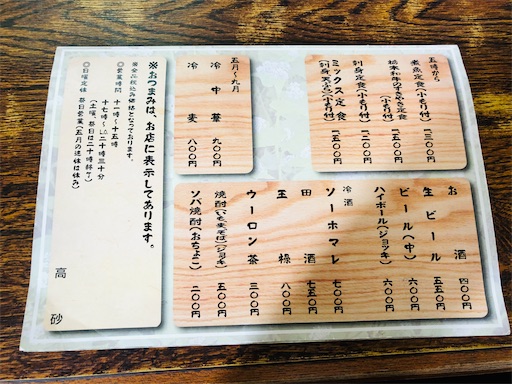 五時から
煮魚定食(小もり付) 一三〇〇円
栃木和牛のすきやき定食(小もり付) 一五〇〇円
刺身定食(小もり付) 一二〇〇円
ミックス定食(小もり付) 一五〇〇円
(刺身 天ぷら)
五月〜九月
冷中華 九〇〇円
冷麦 八〇〇円
お酒 四〇〇円
生ビール 五五〇円
ビール(中) 六〇〇円
ハイボール(ジョッキ) 六〇〇円
冷酒
ソーホマレ 七〇〇円
田酒 七五〇円
王禄 八〇〇円
ウーロン茶 三〇〇円
焼酎(いも・麦・そば)(ジョッキ) 五〇〇円
ソバ焼酎(おちょこ) 二〇〇円
※おつまみは、お店に表示してあります。
※全品税込み価格となっております。
◎営業時間 十一時〜十五時
十七時〜L.O二十時三十分
(土曜、祭日は二十時終了)
◎日曜定休 祭日営業(五月の連休は休み)
高砂